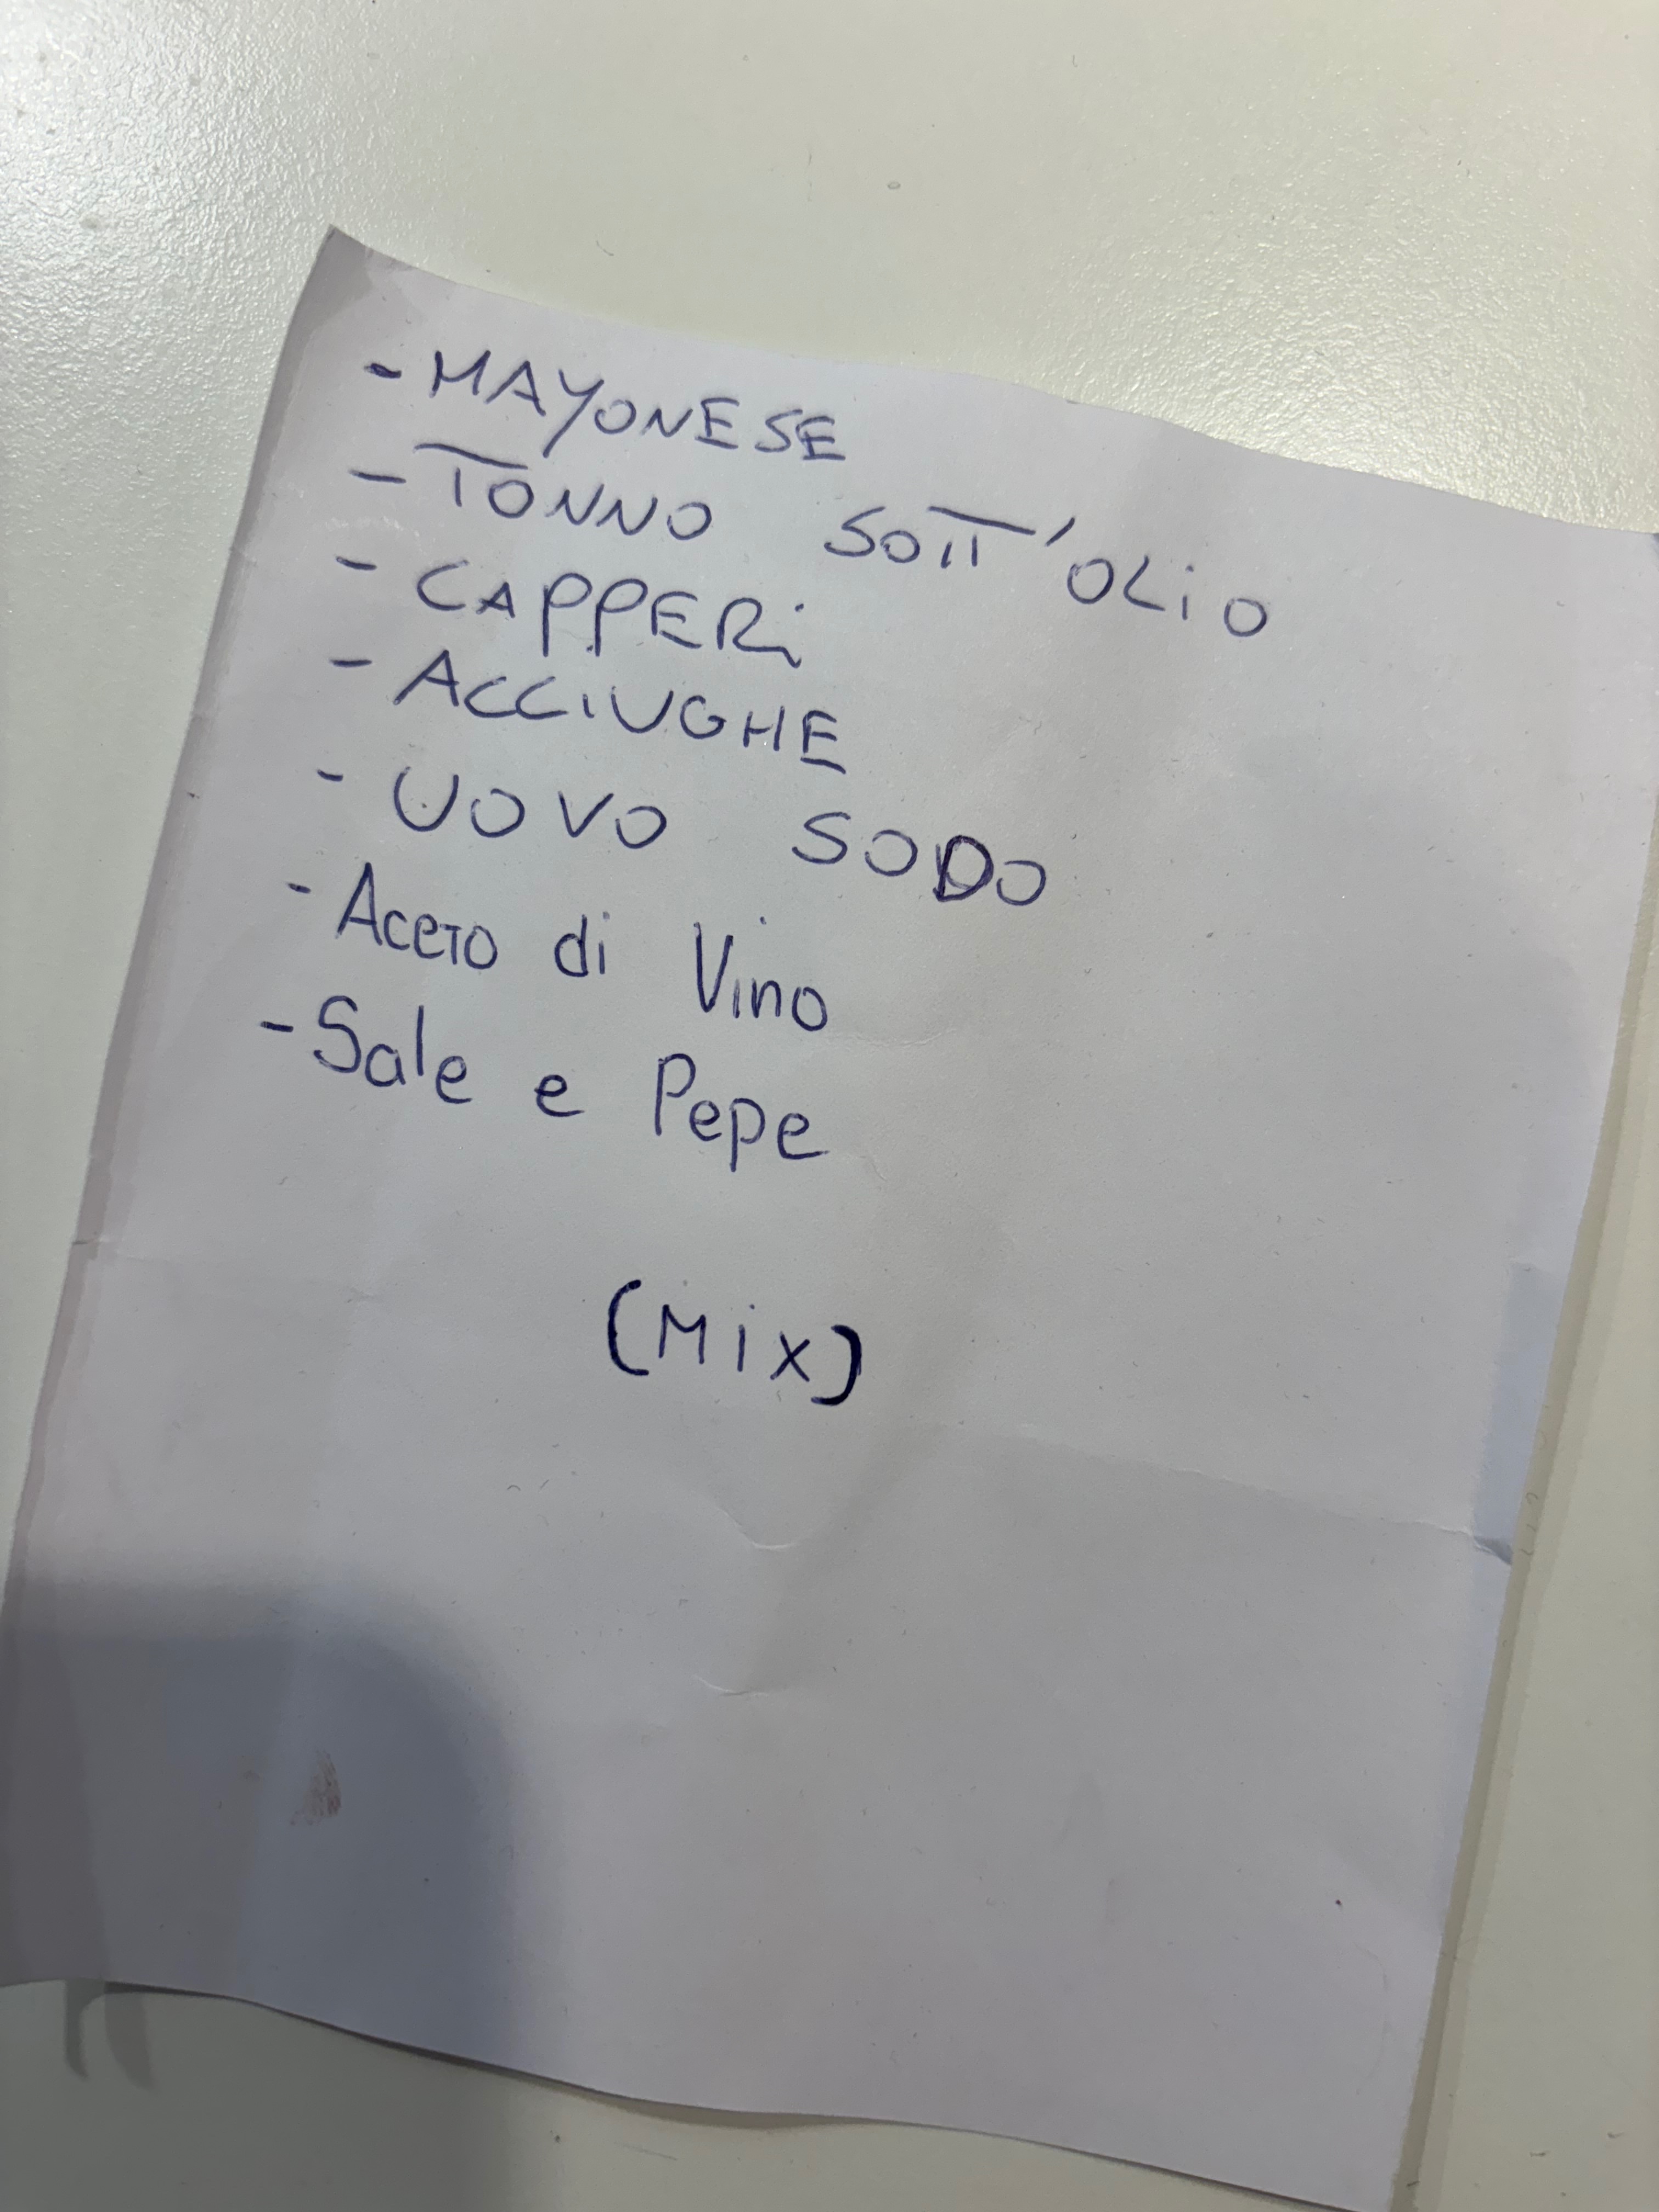 - MAYONESE
- TONNO SOTT'OLiO
- CAPPERi
- ACCIUGHE
- UOVO SODO
- Aceto di Vino
- Sale e Pepe
(Mix)